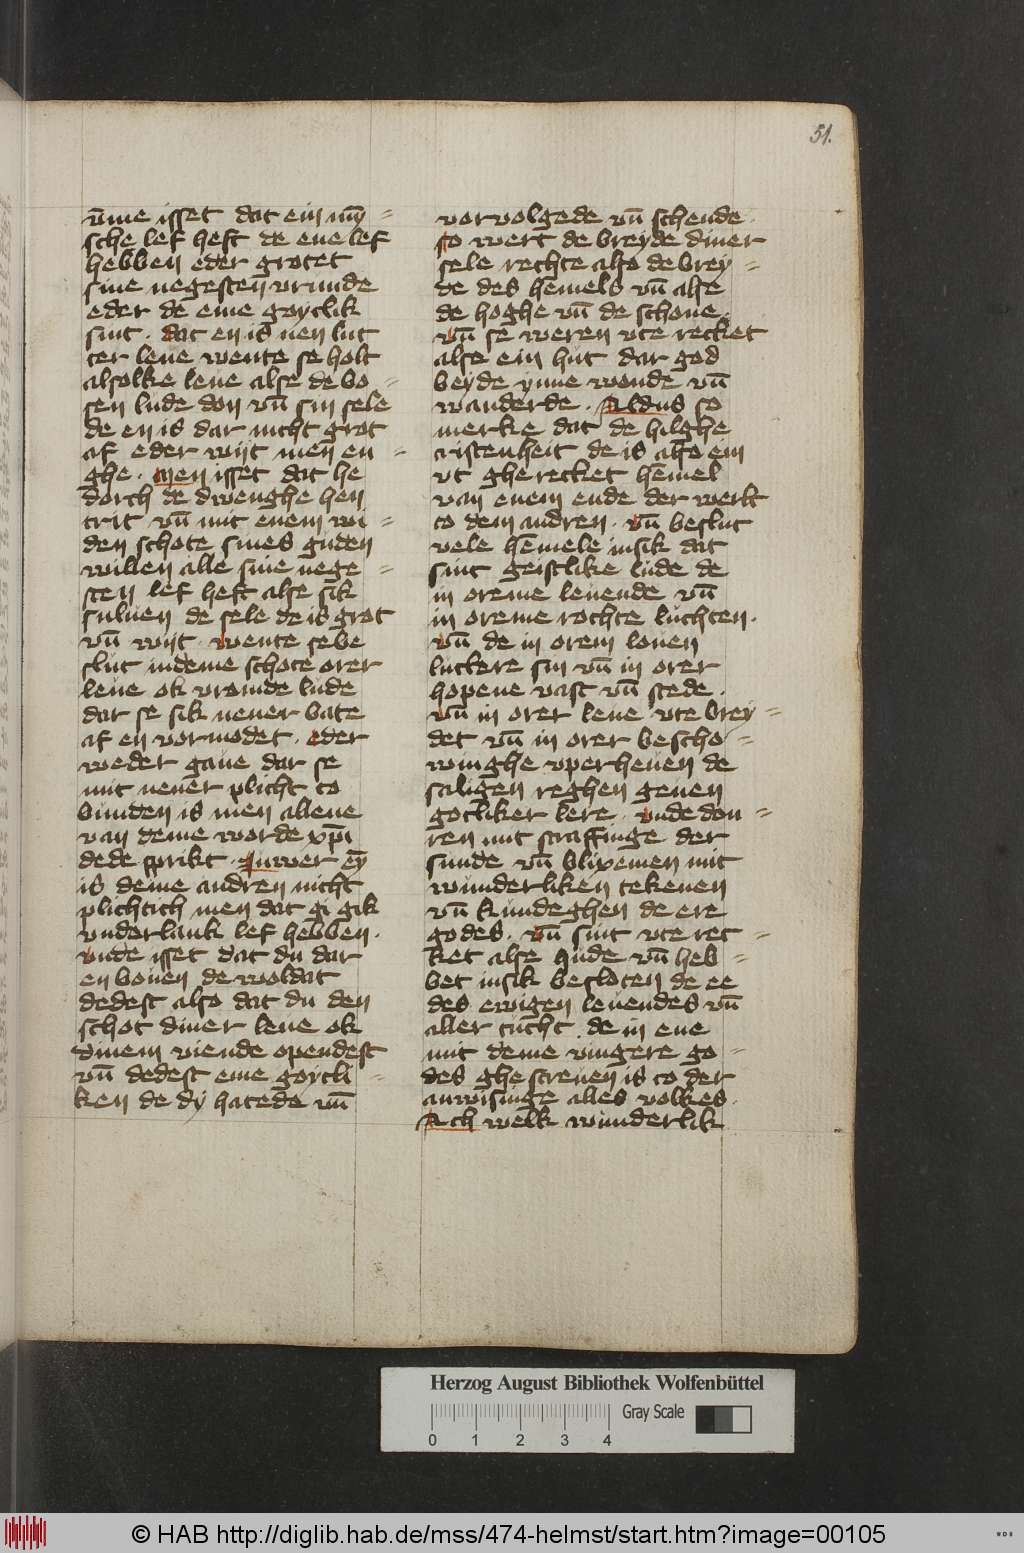 51.
vm̄me isset dat ein mȳ=
sche lef heft de ene lef
hebben eder grotet
sine negesten vrunde
eder de eme goytlik
sint · dat en is nen lut
ter leue wente se holt
alsolke leue alse de bo=
sen lude don vn̄ sin sele
de en is dar nicht grot
af eder wijt men en=
ghe · Men isset dat he
dorch de dwenghe hen
trit vn̄ mit enem wi=
den schote sines guden
willen alle sine nege=
sten lef heft alse sik
suluen de sele de is grot
vn̄ wijt · wente se be
slut in deme schote orer
leue ok vromde lude
dar se sik nener bate
af en vormodet · eder
weder gaue dar se
mit nener plicht to
bunden is men allene
van deme worde xp̄i
dede sprikt · Juwer eȳ
is deme andren nicht
plichtich men dat gi gik
vnderlank lef hebben ·
vnde isset dat du dar
en bouen de woldat
dedest also dat du den
schot diner leue ok
dinem viende opendest
vn̄ dedest eme goytli=
ken de dy hatede vn̄
vorvolgede vn̄ schende ·
so wert de breyde diner
sele rechte also de brey=
de des hemels vn̄ alse
de hoghe vn̄ de schone ·
vn̄ se weren vte recket
alse ein hut dar god
beyde ynne wonde vn̄
wanderde · Aldus so
merke dat de hilghe
cristenheit de is also ein
vt gherecket hemel
van enem ende der werlt
to dem andren · vn̄ beslut
vele hemele in sik dat
sint geistlike lude de
in oreme leuende vn̄
in oreme rochte luchten ·
vn̄ de in orem louen
luttere sin vn̄ in orer
hopene vast vn̄ stede ·
vn̄ in orer leue vte brey=
det vn̄ in orer bescho=
winghe vperheuen de
saligen reghen geuen
gotliker lere · vnde don=
ren mit straffinge der
sunde vn̄ blixemen mit
wunderliken tekenen
vn̄ kundeghen de ere
godes · vn̄ sint vte rec=
ket alse hude vn̄ heb=
bet in sik besloten de ee
des ewigen leuendes vn̄
aller tucht de in ene
mit deme vingere go=
des ghescreuen is to der
anwisinge alles volkes ·
Ach welk wunderlik
Herzog August Bibliothek Wolfenbüttel
Gray Scale
0 1 2 3 4
© HAB http://diglib.hab.de/mss/474-helmst/start.htm?image=00105